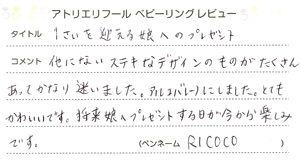 アトリエリフール ベビーリングレビュー
タイトル 1さいを迎える娘へのプレゼント
コメント 他にない ステキなデザインのものがたくさん
あってかなり迷いました。にしました。とても
かわいいです。将来娘へプレゼントする日が今から楽しみ
です。 (ペンネーム RICOCO )